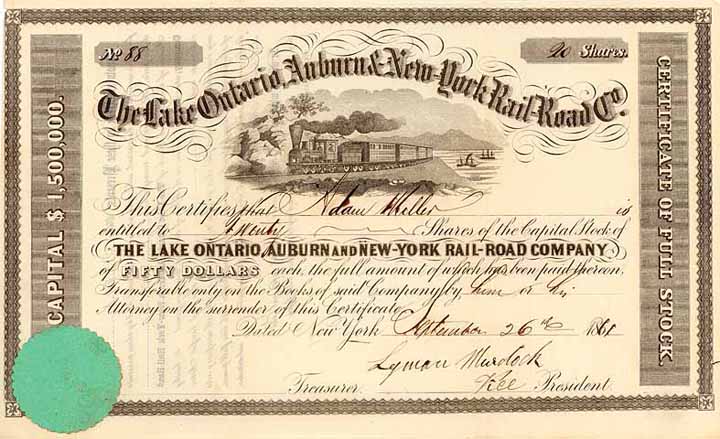 No 88
20 Shares.
The Lake Ontario, Auburn & New-York Rail-Road Co.
CAPITAL $ 1,500,000.
CERTIFICATE OF FULL STOCK.
This Certifies that Adam Miller is
entitled to Twenty Shares of the Capital Stock of
THE LAKE ONTARIO, AUBURN AND NEW-YORK RAIL-ROAD COMPANY
of FIFTY DOLLARS each, the full amount of which has been paid thereon.
Transferable only on the Books of said Company by him or his
Attorney on the surrender of this Certificate
Dated New York September 26th
Lyman Murdock
Treasurer. Vice President.